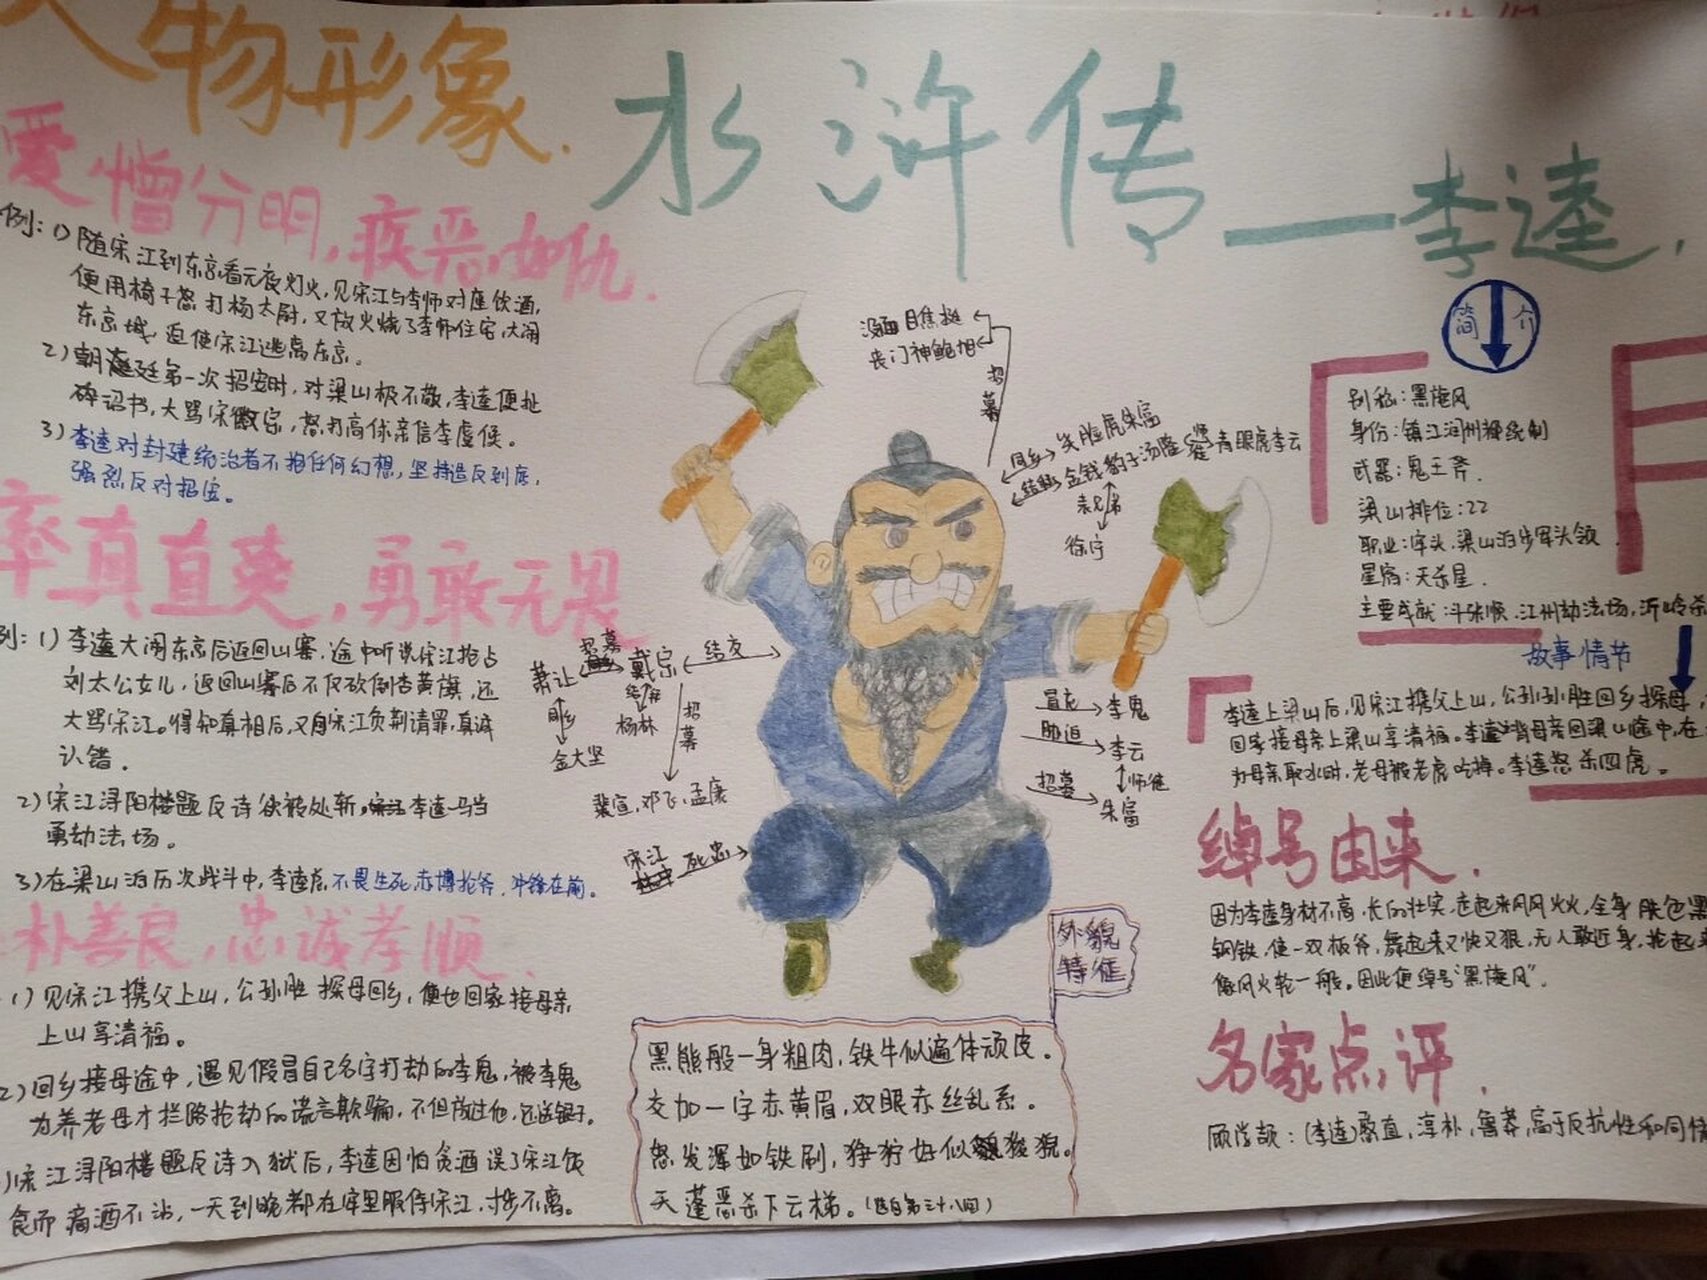 人物形象.
水浒传——李逵.
爱憎分明,疾恶如仇.
例:1)随宋江到东京看元夜灯火,见宋江与李师对座饮酒,
便用椅子怒打杨太尉,又放火烧了李师住宅,大闹
东京城,迫使宋江逃离东京。
2)朝廷第一次招安时,对梁山极不敬,李逵便扯
碎诏书,大骂宋徽宗,怒打高俅亲信李虞候。
3)李逵对封建统治者不抱任何幻想,坚持造反到底,
强烈反对招安。
率真直爽,勇敢无畏
例:1)李逵大闹东京后返回山寨,途中听说宋江抢占
刘太公女儿,返回山寨后不仅砍倒杏黄旗,还
大骂宋江。得知真相后,又向宋江负荆请罪,真诚
认错.
2)宋江浔阳楼题反诗欲被处斩,李逵一马当
勇劫法场。
3)在梁山泊历次战斗中,李逵总不畏生死,赤膊抡斧,冲锋在前。
朴善良,忠诚孝顺.
1)见宋江携父上山,公孙胜探母回乡,便也回家接母亲
上山享清福。
2)回乡接母途中,遇见假冒自己名字打劫的李鬼,被李鬼
为养老母才拦路抢劫的谎言欺骗,不但放过他,还送银子.
)宋江浔阳楼题反诗入狱后,李逵因怕贪酒误了宋江饭
食而滴酒不沾,一天到晚都在牢里服侍宋江,寸步不离。
没面目焦挺
丧门神鲍旭
招募
同乡 笑脸虎朱富
结拜 金钱豹子汤隆 青眼虎李云
表兄弟
徐宁
萧让 招募 戴宗 结交
同乡
金大坚
结拜
杨林
招募
裴宣,邓飞,孟康
宋江 死忠
冒充 李鬼
胁迫 李云
师徒
招募 朱富
外貌
特征
黑熊般一身粗肉,铁牛似遍体顽皮.
交加一字赤黄眉,双眼赤丝乱系.
怒发浑如铁刷,狰狞好似狻猊。
天蓬恶杀下云梯。(选自第三十八回)
简介
别称:黑旋风
身份:镇江润州都统制
武器:鬼王斧.
梁山排位:22
职业:牢头,梁山泊步军头领
星宿:天杀星.
主要成就:斗张顺,江州劫法场,沂岭杀
故事情节
李逵上梁山后,见宋江携父上山,公孙胜回乡探母,
回家接母亲上梁山享清福。李逵背母亲回梁山途中,在
为母亲取水时,老母被老虎吃掉。李逵怒杀四虎。
绰号由来.
因为李逵身材不高,长的壮实,走起来风风火火,全身肤色黑
钢铁,使一双板斧,舞起来又快又狠,无人敢近身,抡起来
像风火轮一般。因此便绰号"黑旋风".
名家点评.
顾学颉:(李逵)憨直,淳朴,鲁莽,富于反抗性和同情